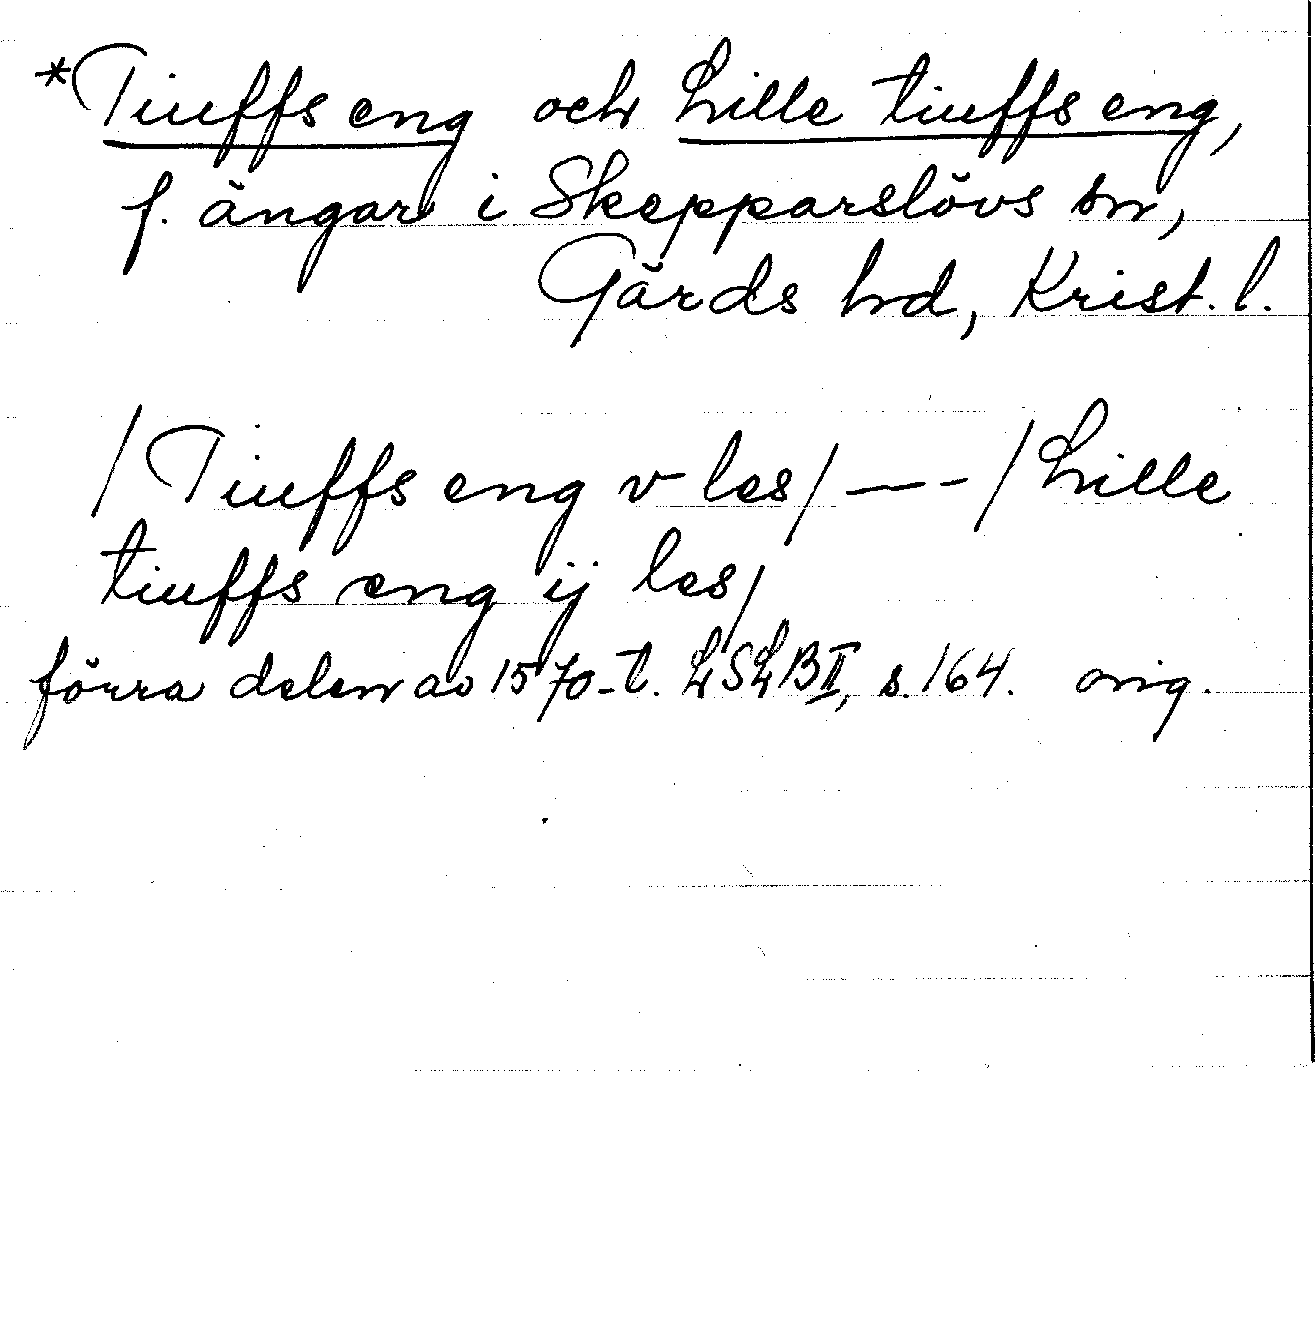 *Tiuffs eng och Lille tiuffs eng,
f. ängar i Skepparslövs sn,
Gärds hd, Krist. l.
/Tiuffs eng v les/ --- /Lille
tiuffs eng ij les/
förra delen av 1570-t. LSLB II, s. 164. orig.